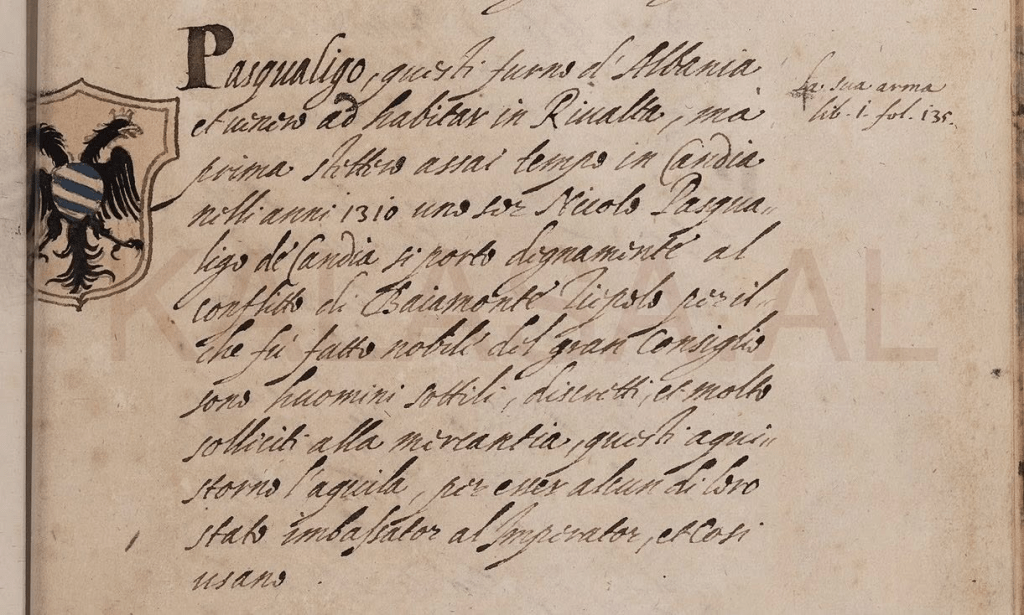 Pasqualigo, questi furno d'Albania
et venero ad habitar in Riualta, mà
prima stettero assai tempo in Candia
nelli anni 1310 uno ser Nicolo Pasqua-
ligo de Candia si portò degnamente al
conflitto di Baiamonte Tiepolo per il
che fù fatto nobile del gran Consiglio
sono huomini sottili, discretti, et molto
solliciti alla mercantia, questi aqui-
storno l'aquila, per esser alcun di loro
stato imbassator al Imperator, et cosi
usano.
la sua arma
lib. 1. fol. 135.